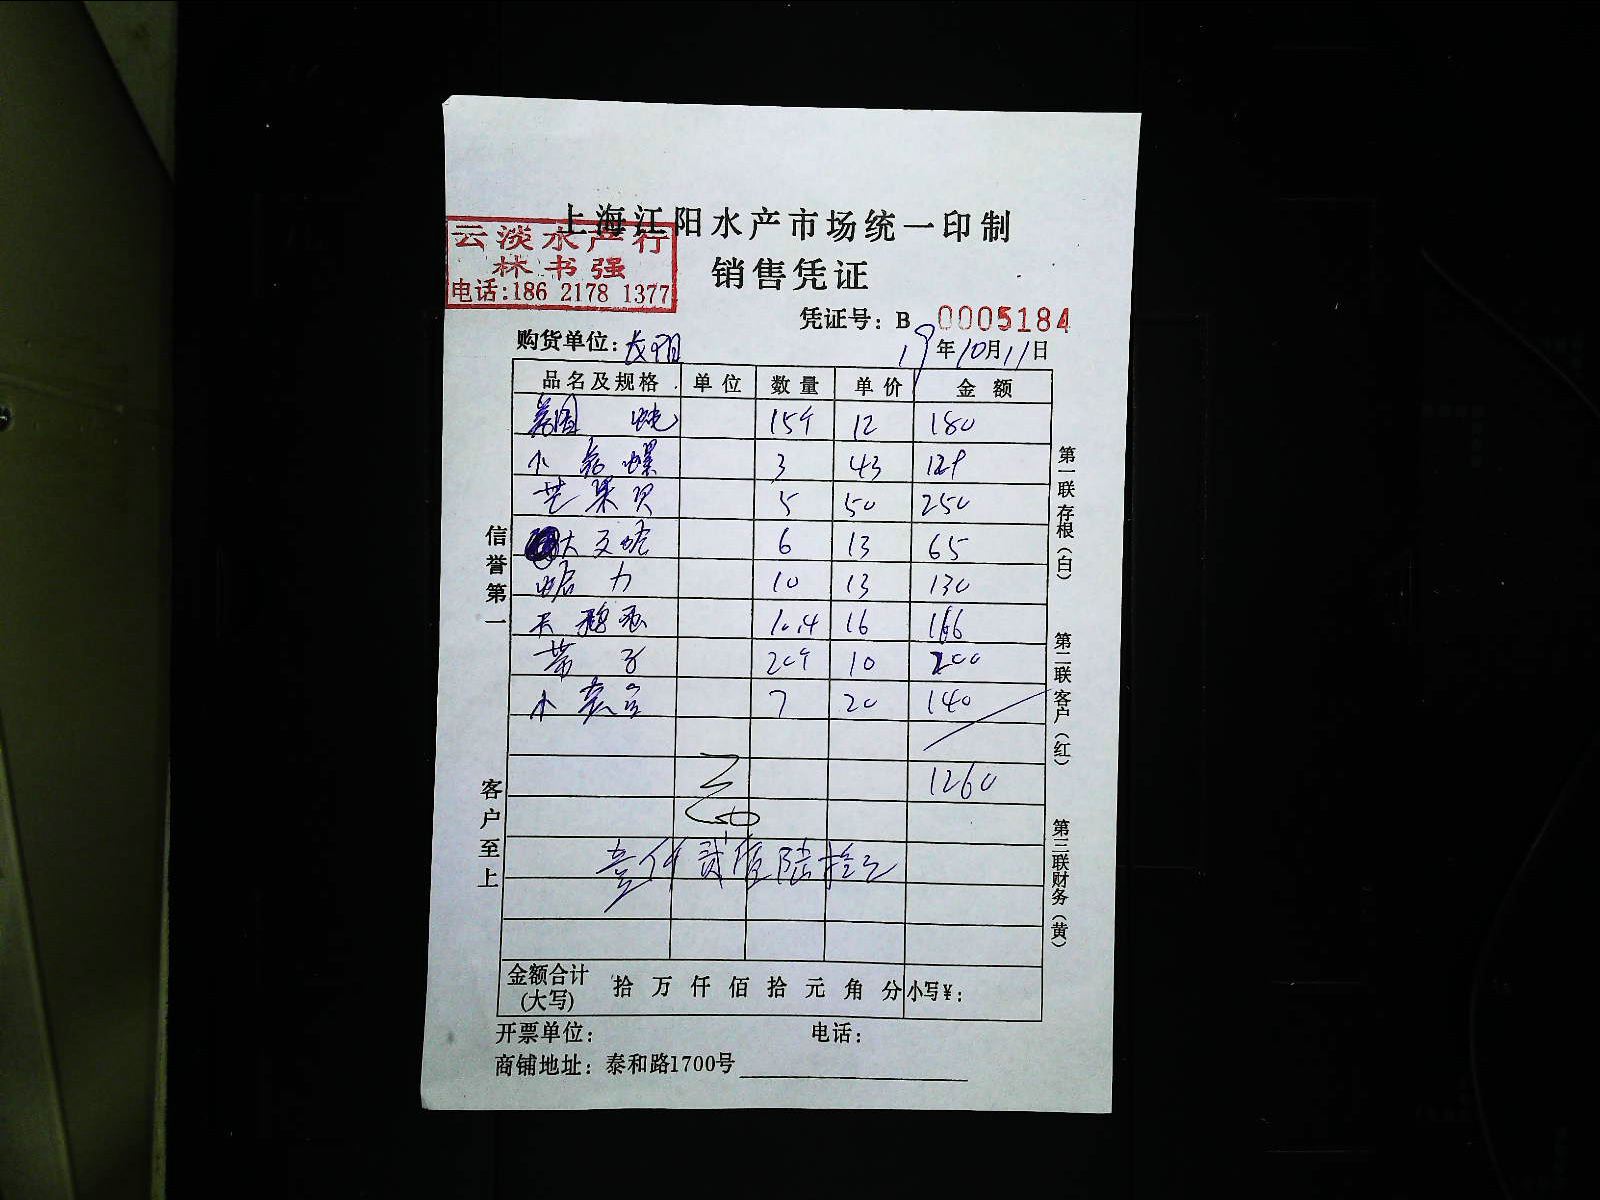 上海江阳水产市场统一印制
云淡水产行
林书强
电话:186 2178 1377
销售凭证
凭证号：B 0005184
购货单位：
19年10月11日
品名及规格 单位 数量 单价 金额
15个 12 180
小 螺 3 43 129
芒果贝 5 50 250
大文蛤 6 13 65
蛤力 10 13 130
10.4 16 166
带子 20个 10 200
小 7 20 140
1260
壹仟贰佰陆拾元
金额合计(大写) 拾 万 仟 佰 拾 元 角 分 小写¥：
开票单位： 电话：
商铺地址：泰和路1700号
信誉第一
客户至上
第一联 存根（白）
第二联 客户（红）
第三联 财务（黄）